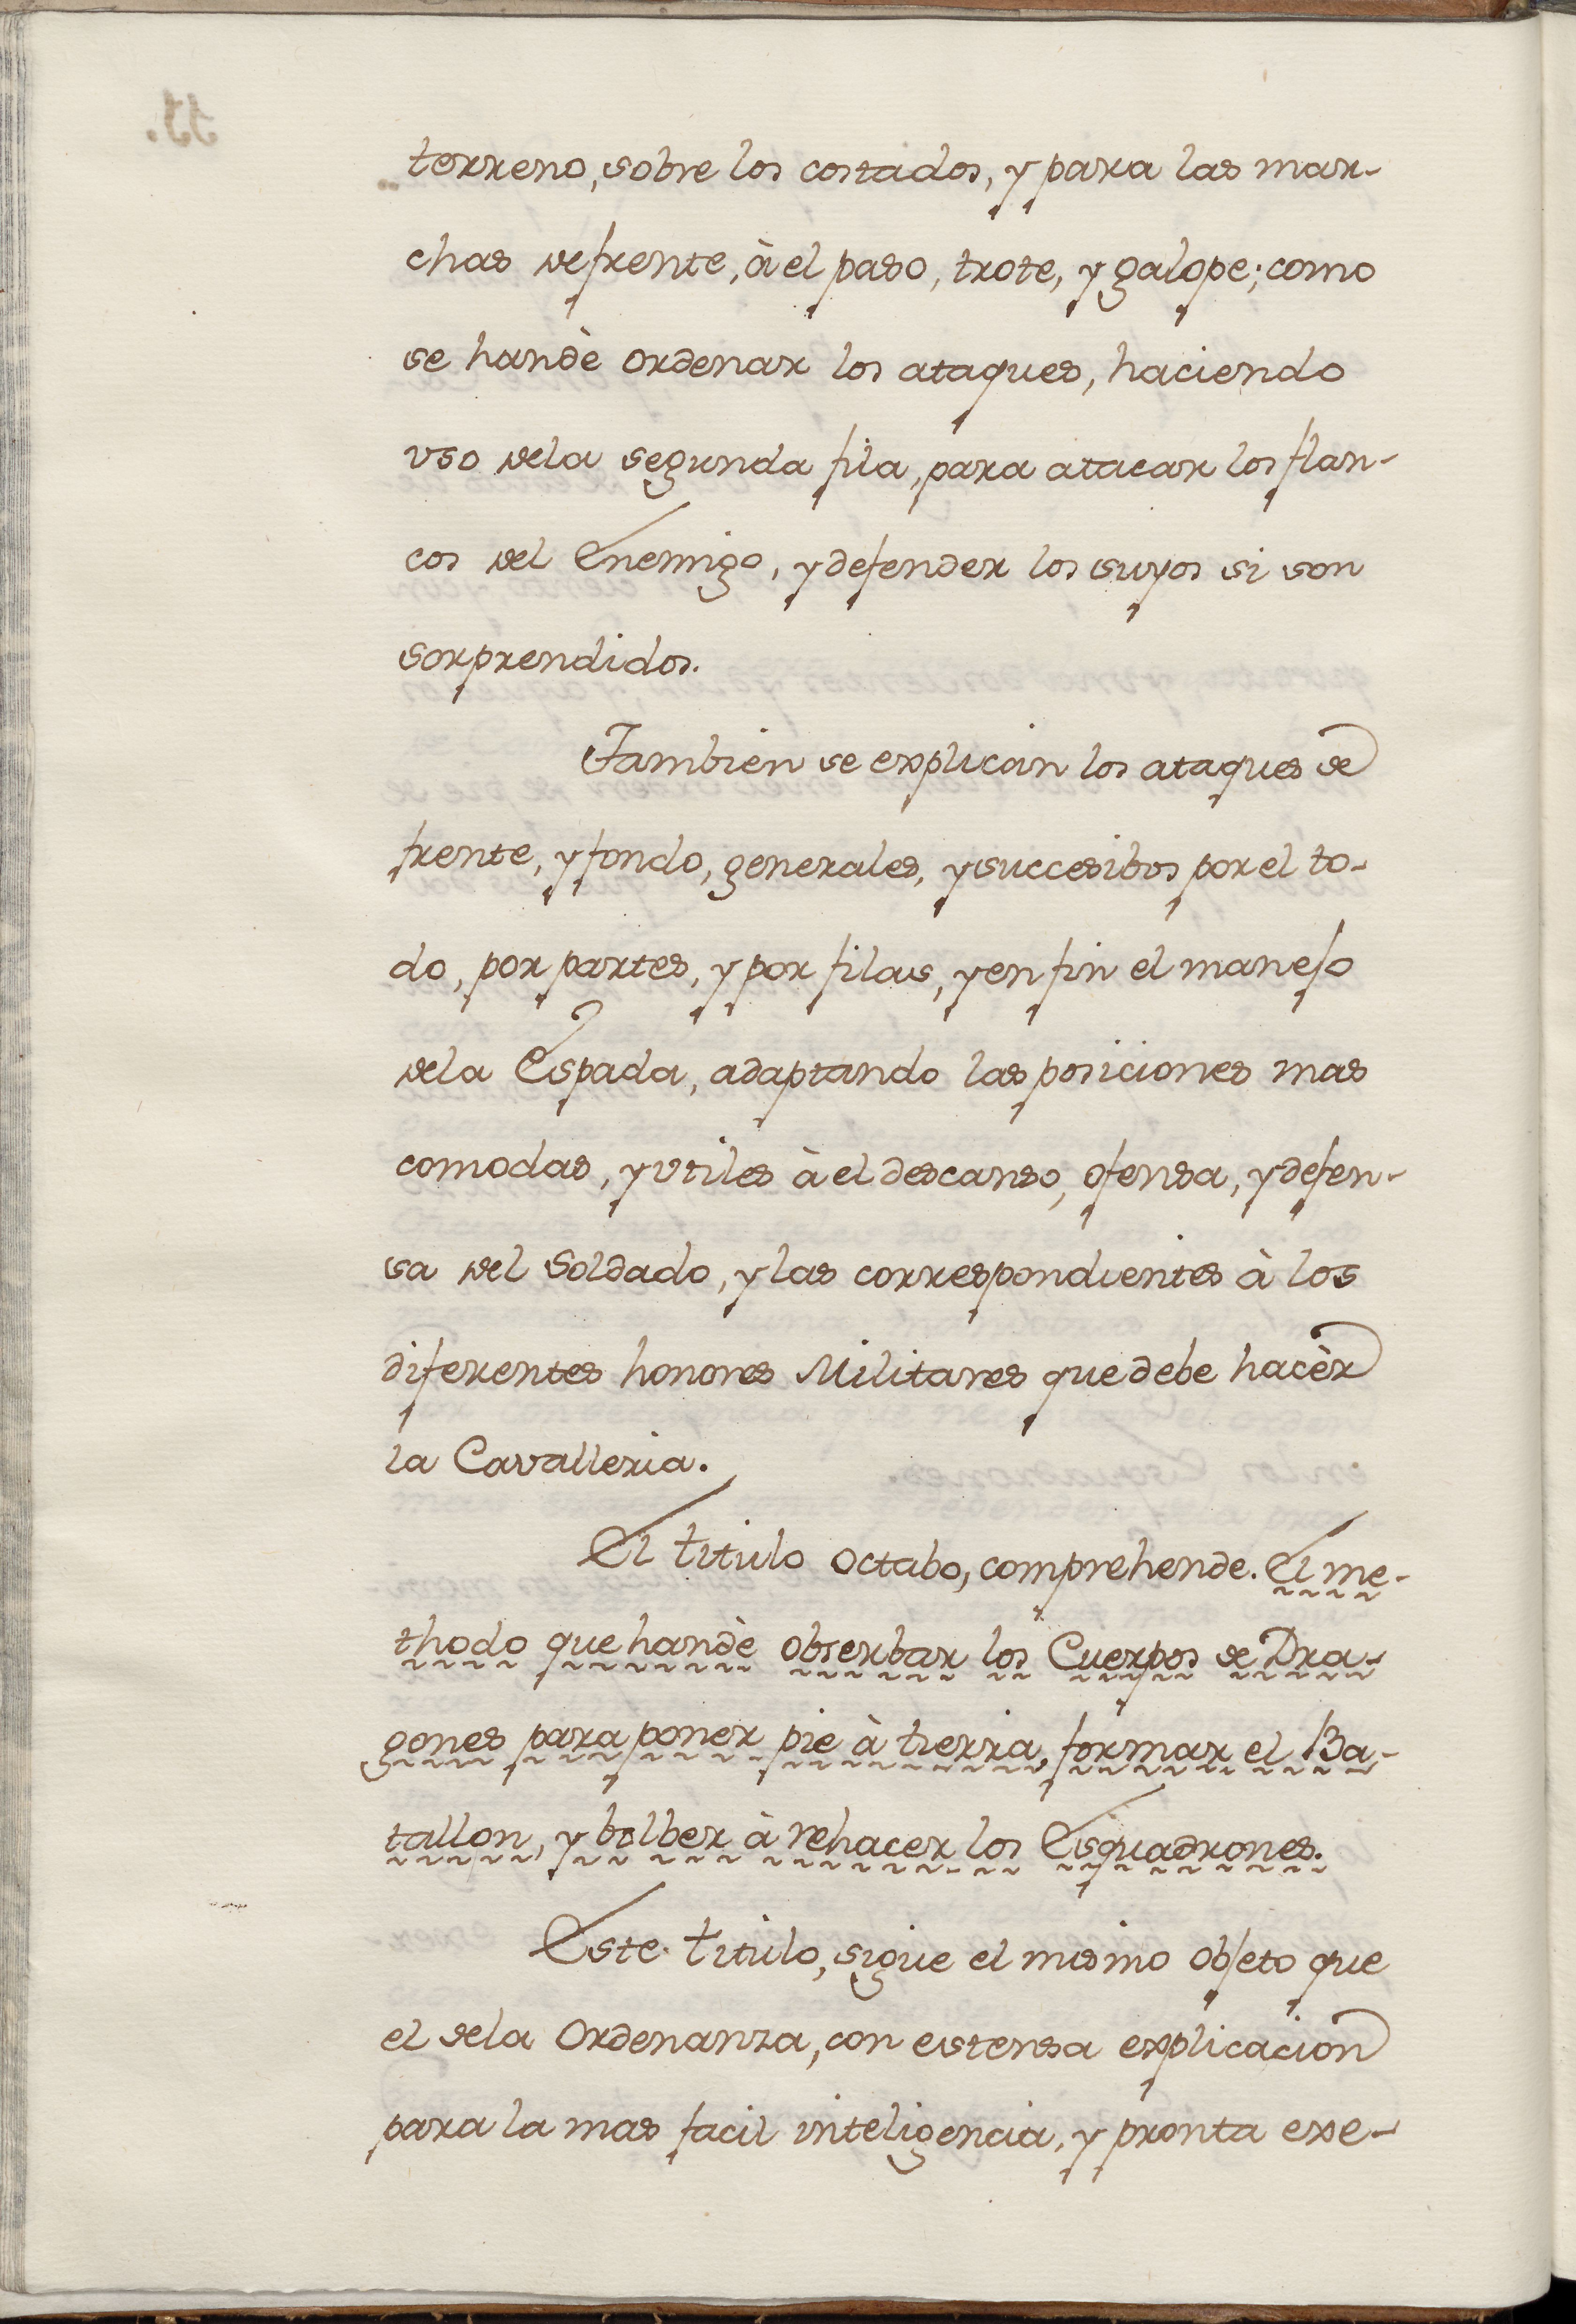 terreno, sobre los costados, y para las mar-
chas de frente, à el paso, trote, y galope; como
se han dè ordenar los ataques, haciendo
vso dela segunda fila, para atacar los flan-
cos del Enemigo, y defender los suyos si son
sorprendidos.
Tambien se explican los ataques de
frente, y fondo, generales, y succesibos por el to-
do, por partes, y por filas, y en fin el manejo
dela Espada, adaptando las posiciones mas
comodas, y vtiles à el descanso, ofensa, y defen-
sa del Soldado, y las correspondientes à los
diferentes honores Militares que debe hacèr
la Cavalleria.
El titulo octabo, comprehende. El me-
thodo que han dè obserbar los Cuerpos de Dra-
gones para poner pie à tierra, formar el Ba-
tallon, y bolber à rehacer los Esquadrones.
Este titulo, sigue el mismo objeto que
el dela Ordenanza, con estensa explicacion
para la mas facil inteligencia, y pronta exe-